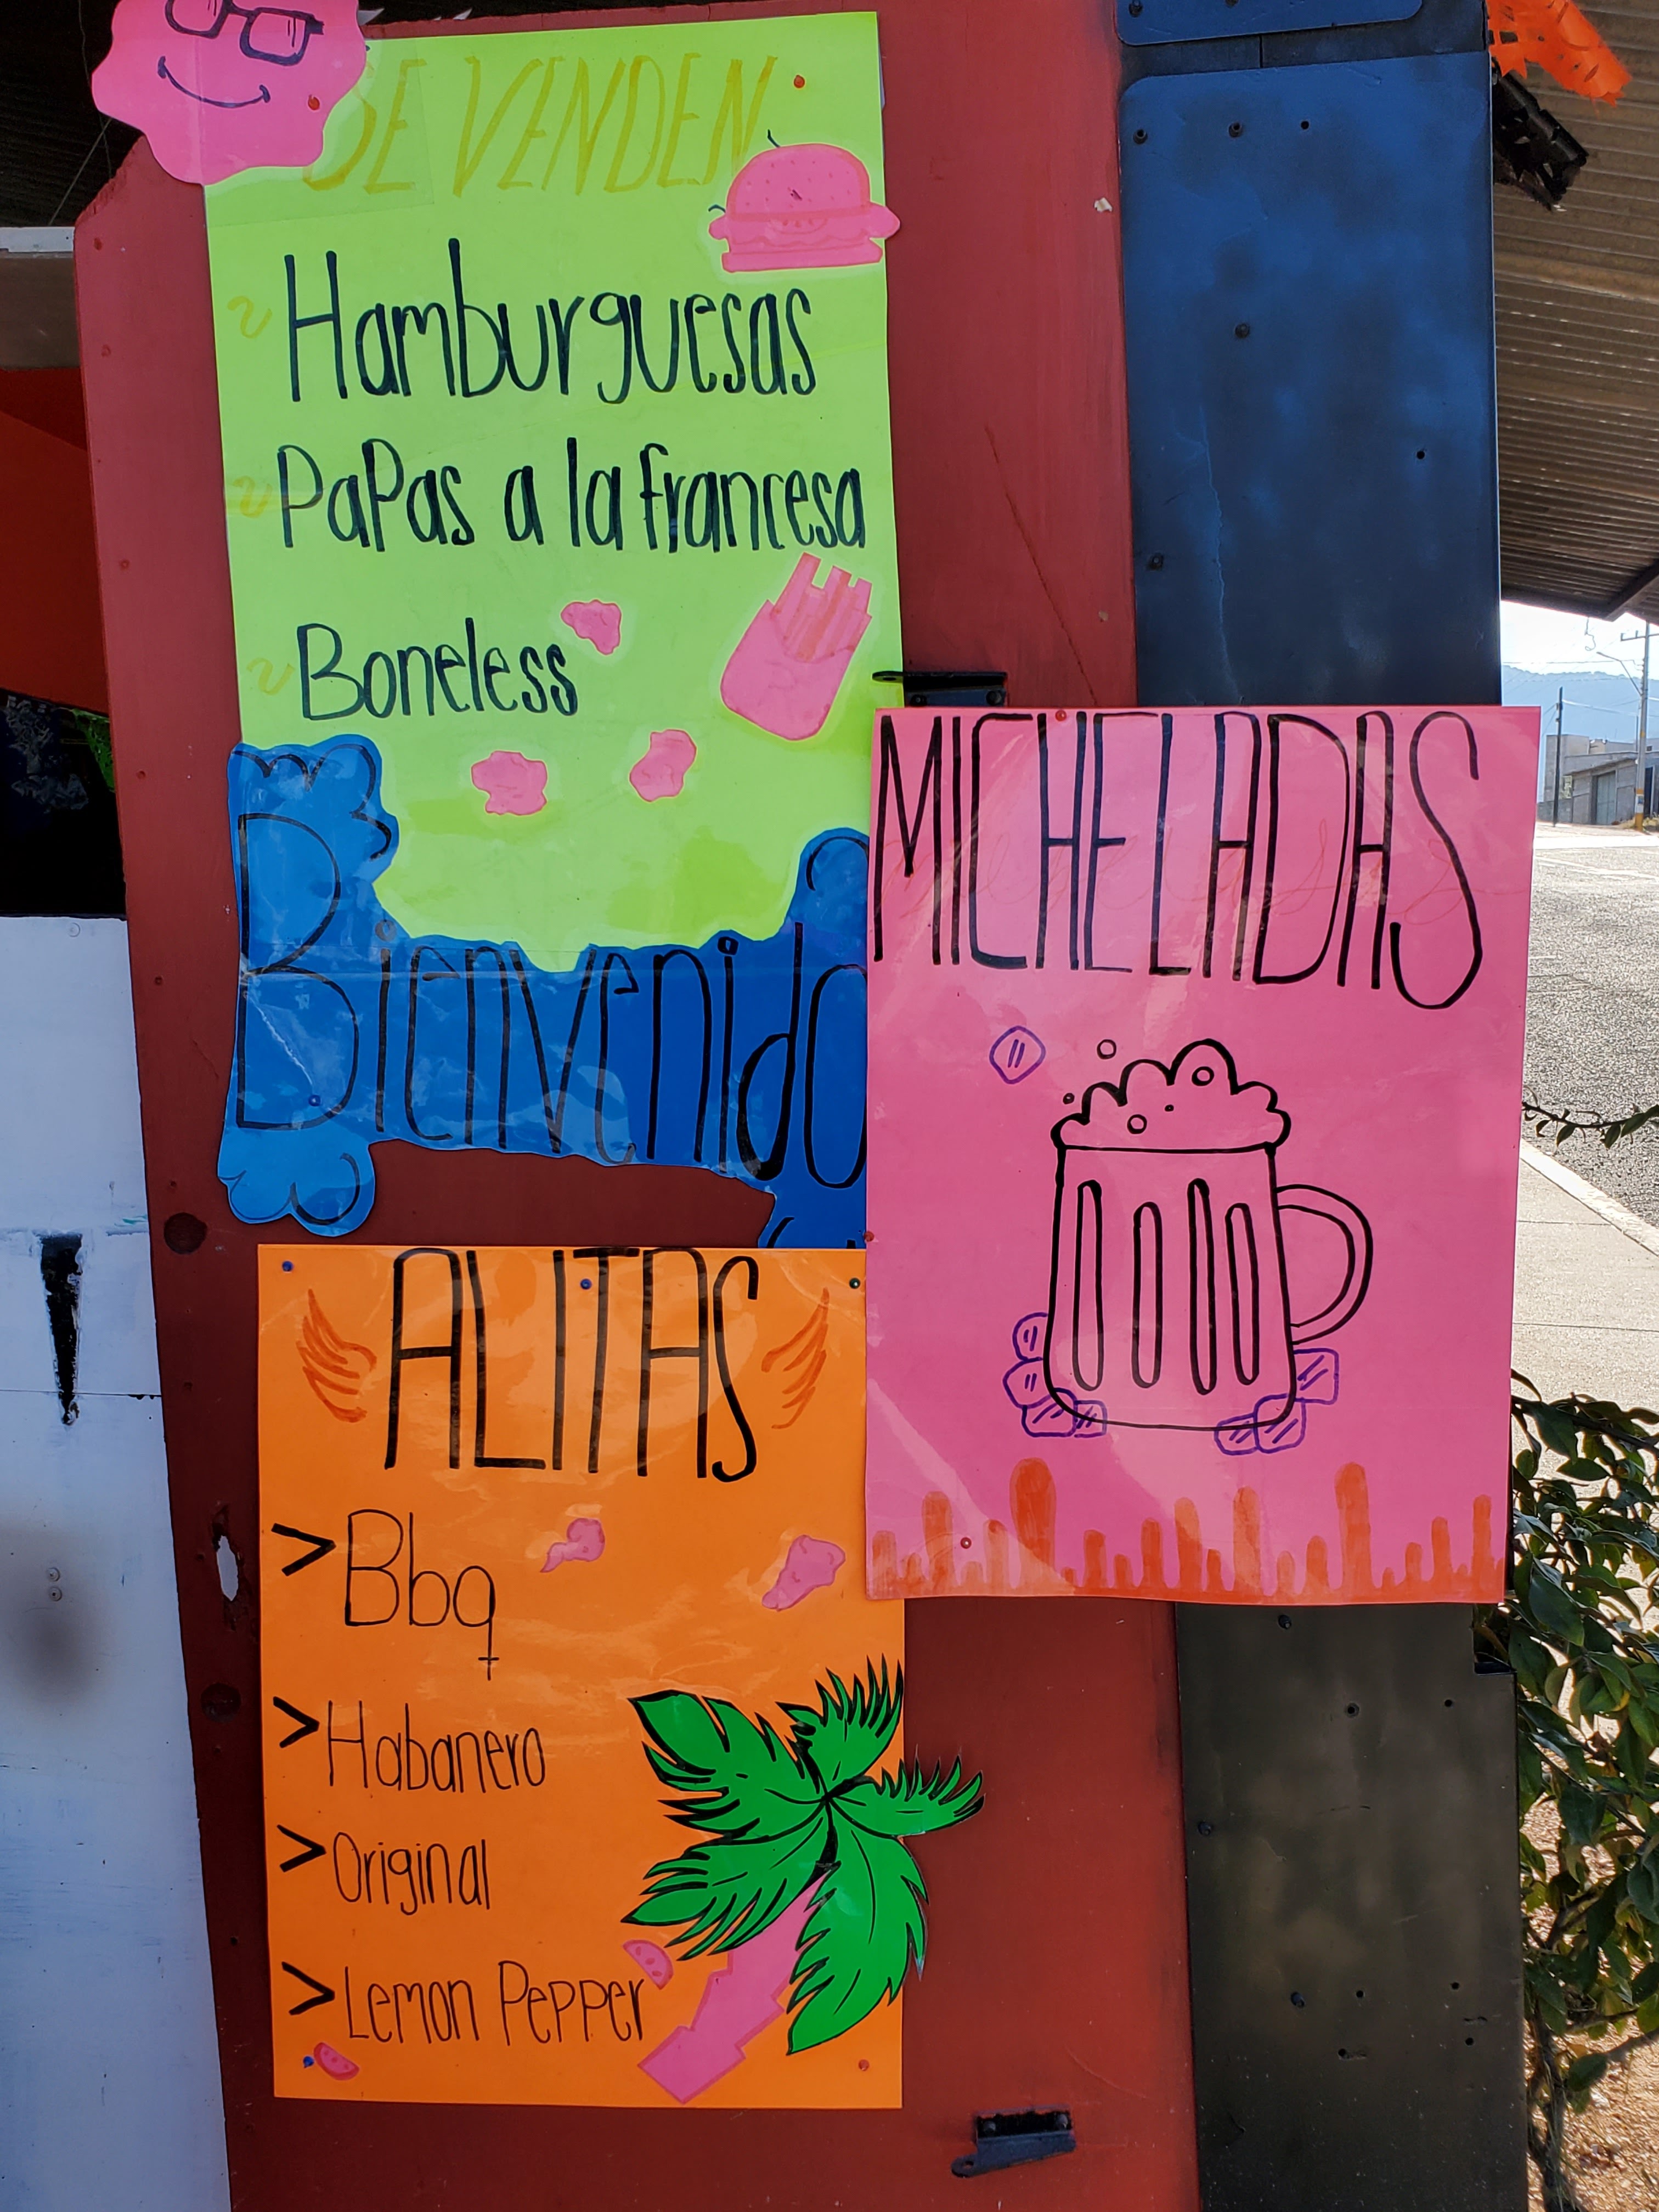 SE VENDEN
Hamburguesas
PaPas a la francesa
Boneless
Bienvenido
MICHELADAS
ALITAS
> Bbq
> Habanero
> Original
> Lemon Pepper